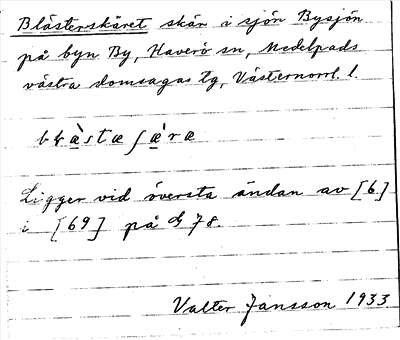 Blåsterskäret skär i sjön Bysjön
på byn By, Haverö sn, Medelpads
västra domsagas tg, Västernorrl. l.
Ligger vid översta ändan av [6]
i [69] på G 78.
Valter Jansson 1933